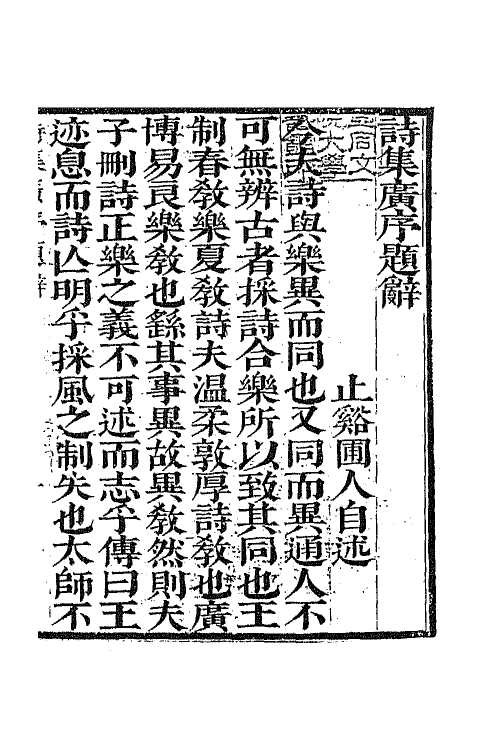 詩集廣序題辭
止谿圃人自述
今夫詩與樂異而同也又同而異通人不
可無辨古者採詩合樂所以致其同也王
制春敎樂夏敎詩夫溫柔敦厚詩敎也廣
博易良樂敎也繇其事異故異敎然則夫
子刪詩正樂之義不可述而志乎傳曰王
迹息而詩亾明乎採風之制失也太師不